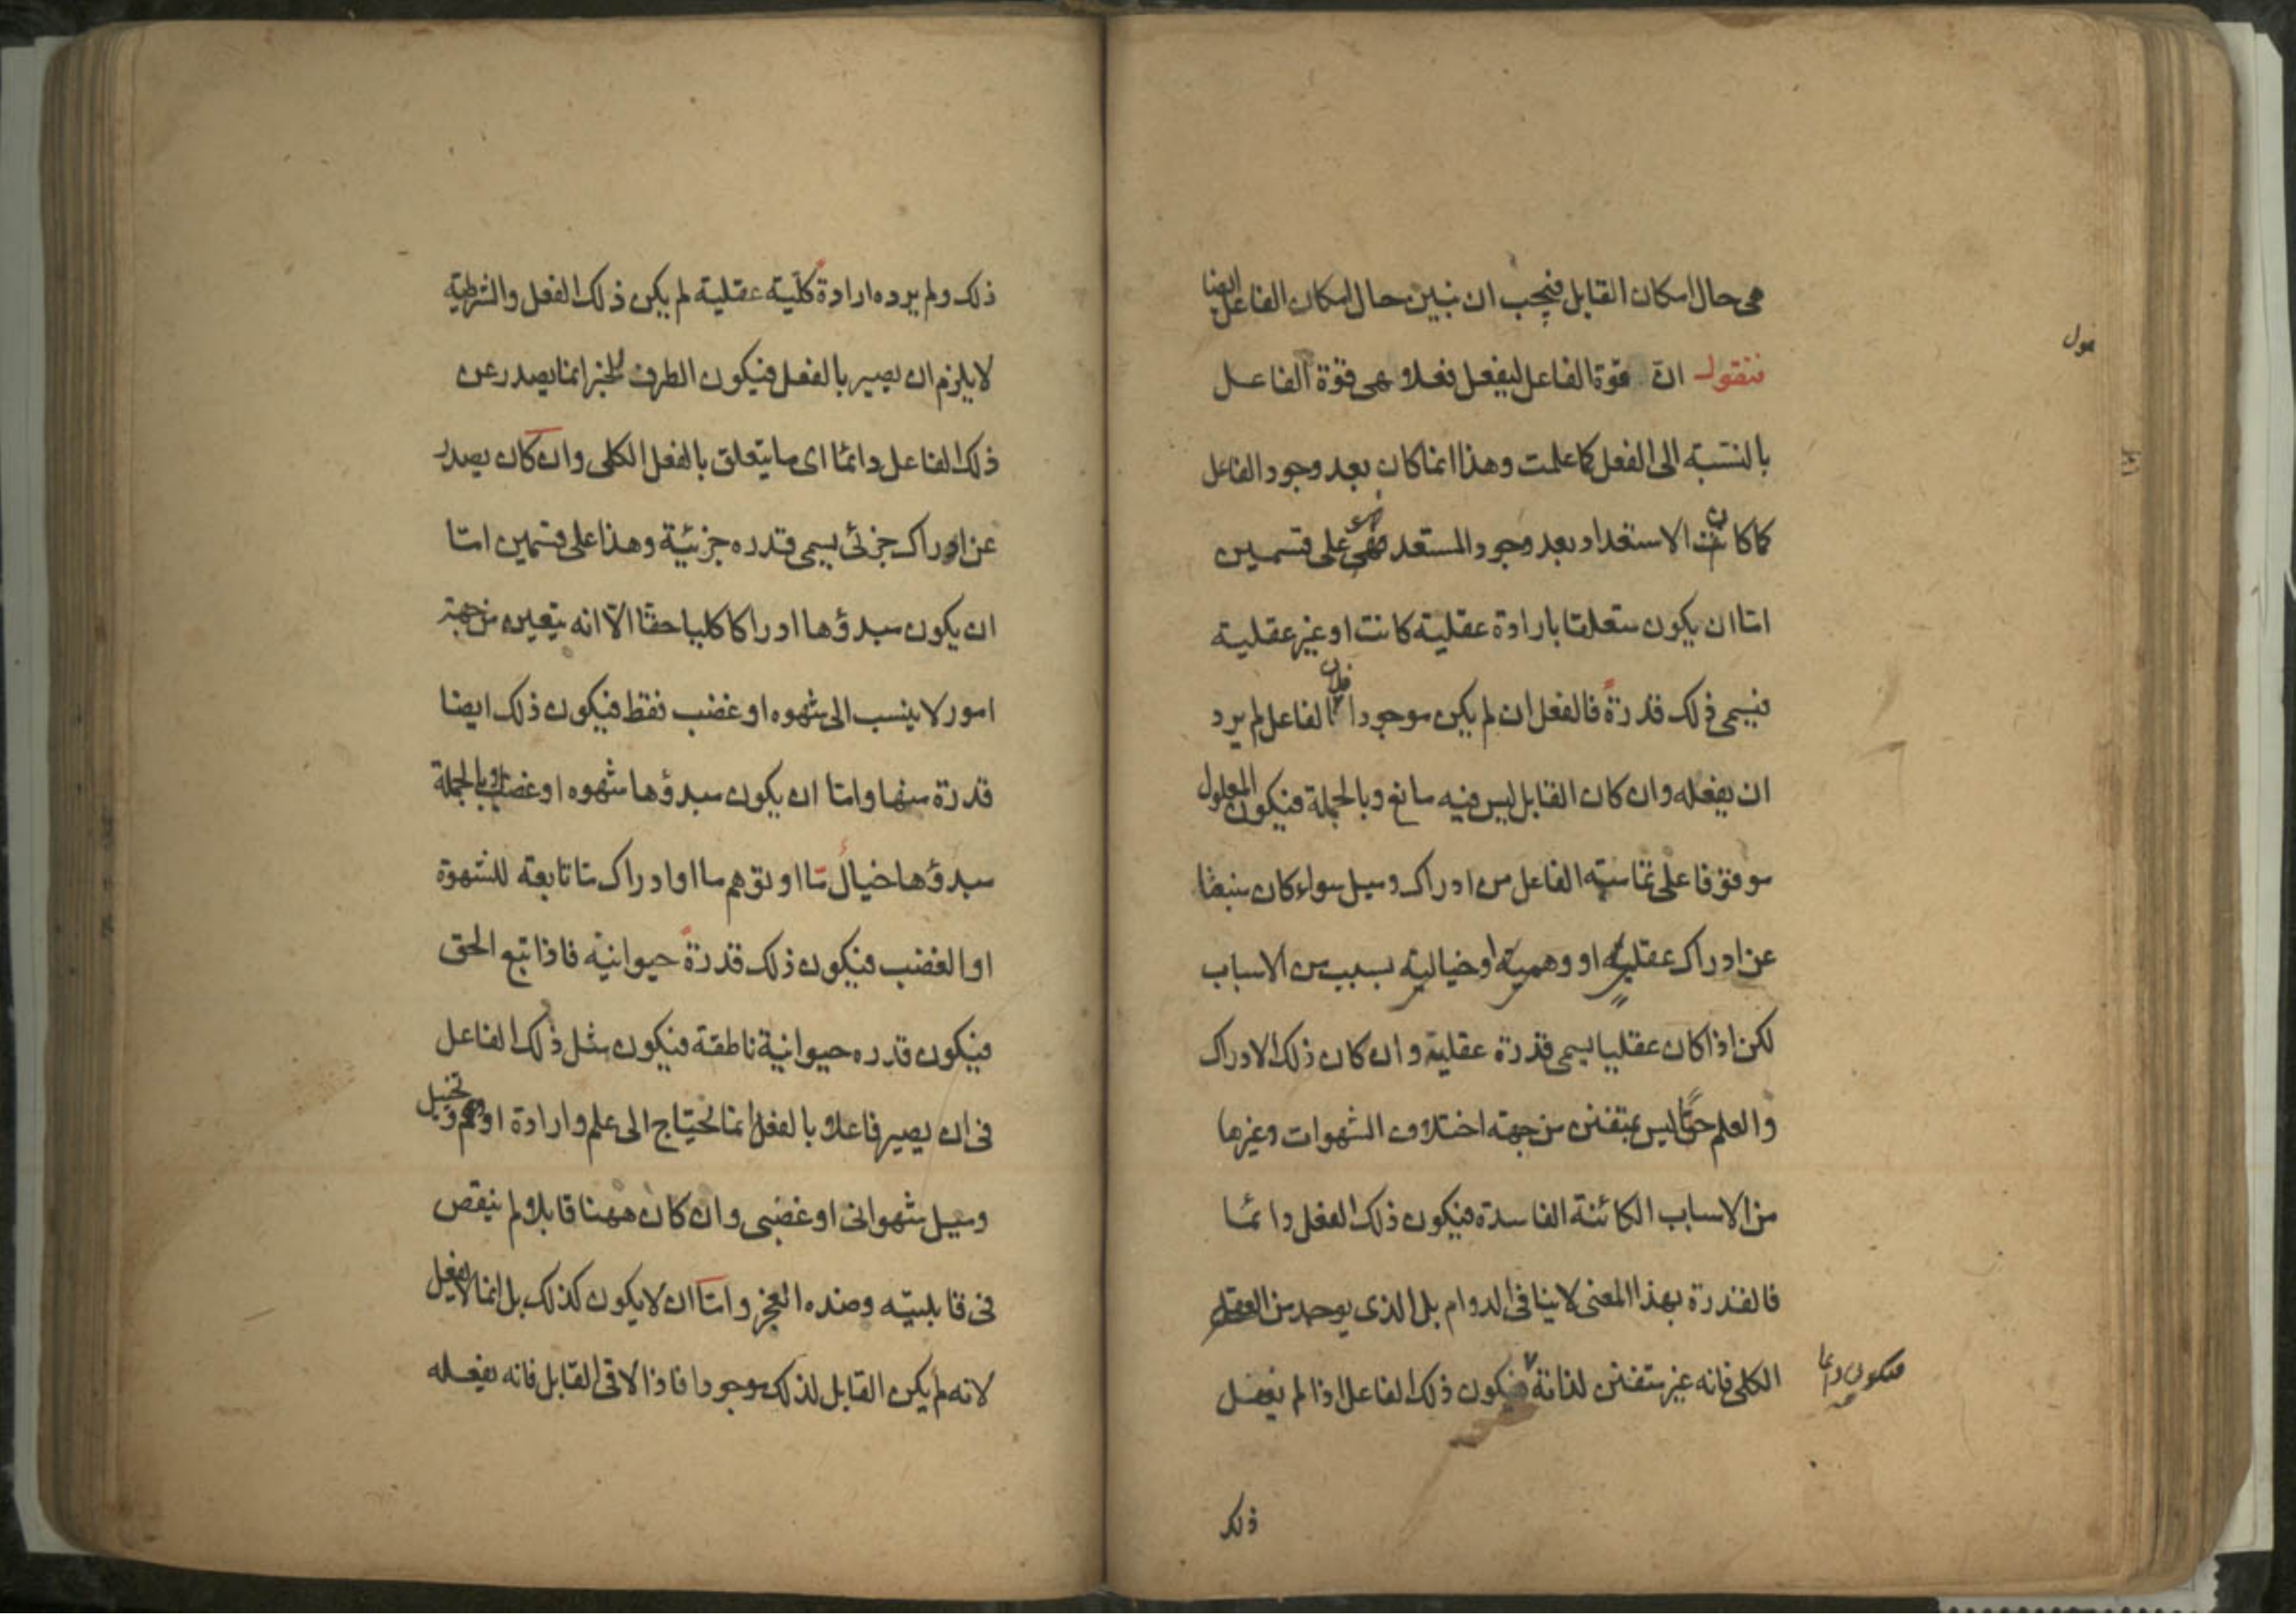 هى حال امكان القابل فيجب ان نبين حال امكان الفاعل ايضا
فنقول ان قوة الفاعل ليفعل فعلا هى قوة الفاعل
بالنسبة الى الفعل كما علمت وهذا انما كان بعد وجود الفاعل
كما كان الاستعداد بعد وجود المستعد فهى على قسمين
اما ان يكون متعلقا بارادة عقلية كانت او غير عقلية
فيسمى ذلك قدرة فالفعل ان لم يكن موجودا فلان الفاعل لم يرد
ان يفعله وان كان القابل ليس فيه مانع وبالجملة فيكون المعلول
موقوفا على تمامية الفاعل من ادراك وميل سواء كان منبعثا
عن ادراك عقلية او وهمية او خيالية بسبب من الاسباب
لكن اذا كان عقليا يسمى قدرة عقلية وان كان ذلك الادراك
والعلم حقا ليس بمتفنن من جهة اختلاف الشهوات وغيرها
من الاسباب الكائنة الفاسدة فيكون ذلك الفعل دائما
فالقدرة بهذا المعنى لا ينافى الدوام بل الذى يوجد من العقل
الكلى فانه غير متفنن لذاته فيكون ذلك الفاعل اذا لم يفعل
فيكون دائما
ذلك
ذلك ولم يرده ارادة كلية عقلية لم يكن ذلك الفعل والشرطية
لا يلزم ان يصير بالفعل فيكون الطرف للخبر انما يصدر عن
ذلك الفاعل دائما اى ما يتعلق بالفعل الكلى وان كان يصدر
عن ادراك جزئى يسمى قدره جزئية وهذا على قسمين اما
ان يكون مبدؤها ادراكا كليا حقا الا انه يتعين من جهة
امور لا ينسب الى شهوه او غضب فقط فيكون ذلك ايضا
قدرة منها واما ان يكون مبدؤها شهوه او غضبا وبالجملة
مبدؤها خيال ما او توهم ما او ادراك ما تابعة للشهوة
او الغضب فيكون ذلك قدرة حيوانية فاذا تبع الحق
فيكون قدره حيوانية ناطقة فيكون مثل ذلك الفاعل
فى ان يصير فاعلا بالفعل انما يحتاج الى علم وارادة او وهم وتخيل
وميل شهوانى او غضبى وان كان ههنا قابلا ولم ينقص
فى قابليته وضده العجز واما ان لا يكون كذلك بل انما لا يفعل
لانه لم يكن القابل لذلك موجودا فاذا لاقى القابل فانه يفعله